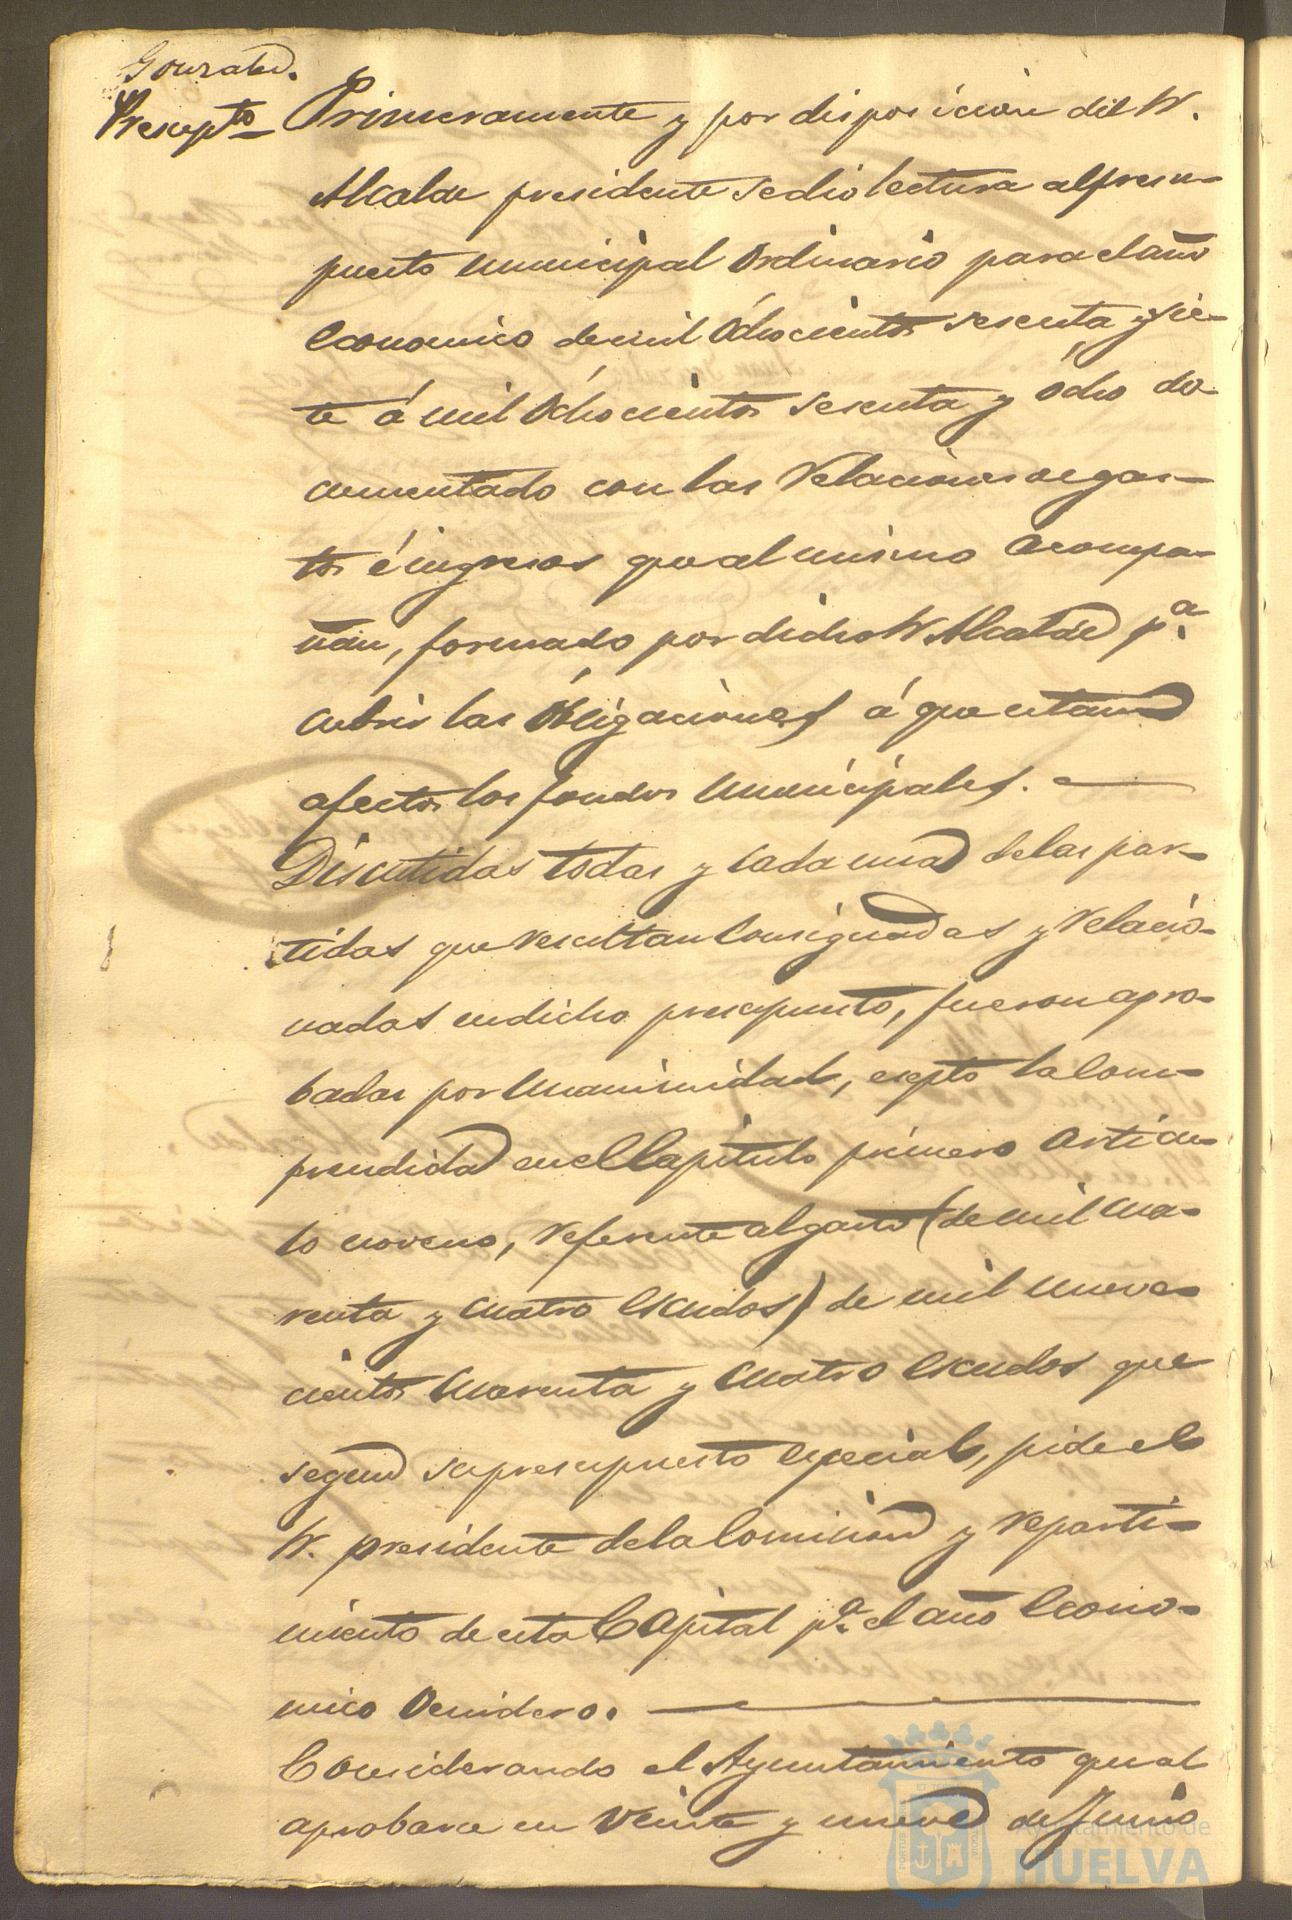 Gonzalez.
Presupto Primeramente y por disposicion del Sr.
Alcalde presidente se dio lectura al presu-
puesto municipal Ordinario para el año
economico de mil Ochocientos sesenta y sie-
te á mil Ochocientos sesenta y ócho do-
cumentado con las relaciones de gas-
tos é ingresos que al mismo acompa-
ñan, formado por dicho Sr Alcalde pa.
cubrir las Obligaciones á que estan
afectos los fondos municipales.
Discutidas todas y cada una de las par-
tidas que resultan Consignadas y relacio-
nadas en dicho presupuesto, fueron apro-
badas por unanimidad, esepto la com-
prendida en el Capitulo primero Articu-
lo noveno, referente al gasto (de mil cua-
renta y cuatro escudos) de mil nueve-
cientos cuarenta y cuatro escudos que
segun su presupuesto especial, pide el
Sr. presidente de la Comision y reparti-
miento de esta Capital pa. el año Econo-
mico Venidero.
Considerando el Ayuntamiento que al
aprobarse en Veinte y nueve de Junio
Ayuntamiento de
HUELVA